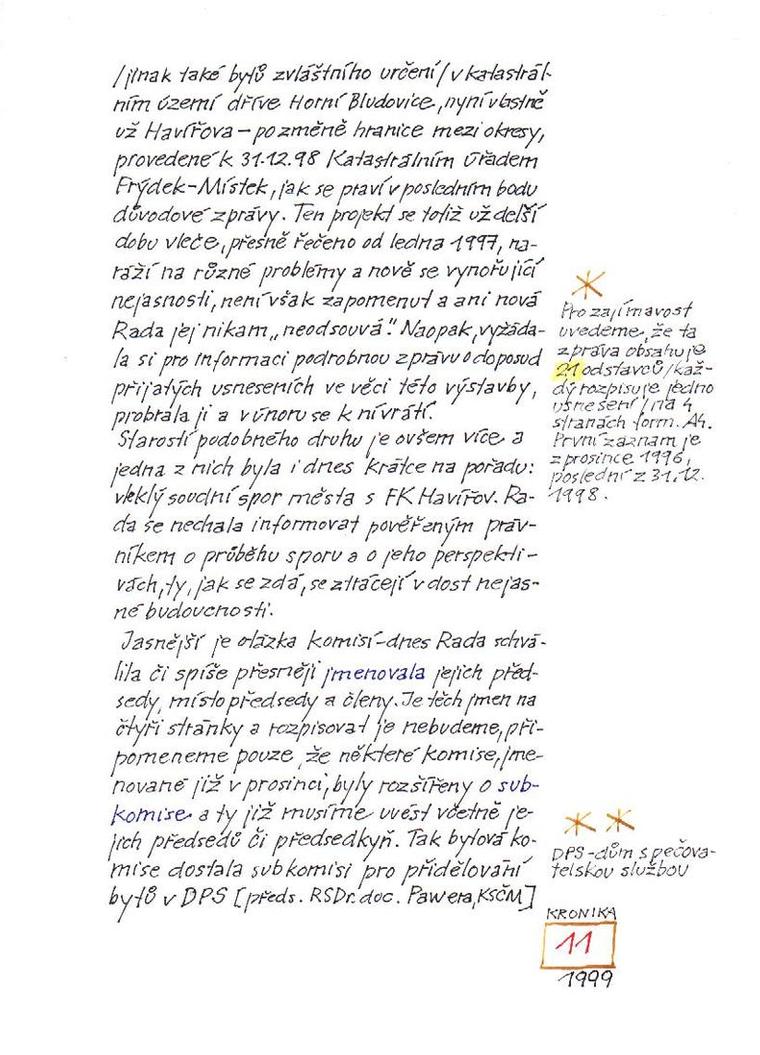 /jinak také bytů zvláštního určení/ v katastrál-
ním území dříve Horní Bludovice, nyní vlastně
už Havířova – po změně hranice mezi okresy,
provedené k 31.12.98 Katastrálním úřadem
Frýdek-Místek, jak se praví v posledním bodu
důvodové zprávy. Ten projekt se totiž už delší
dobu vleče, přesně řečeno od ledna 1997, na-
ráží na různé problémy a nově se vynořující
nejasnosti, není však zapomenut a ani nová
Rada jej nikam „neodsouvá". Naopak, vyžáda-
la si pro informaci podrobnou zprávu o doposud
přijatých usneseních ve věci této výstavby,
probrala ji a v únoru se k ní vrátí.
Starostí podobného druhu je ovšem více a
jedna z nich byla i dnes krátce na pořadu:
vleklý soudní spor města s FK Havířov. Ra-
da se nechala informovat pověřeným práv-
níkem o průběhu sporu a o jeho perspekti-
vách, ty, jak se zdá, se ztrácejí v dost nejas-
né budoucnosti.
Jasnější je otázka komisí-dnes Rada schvá-
lila či spíše přesněji jmenovala jejich před-
sedy, místopředsedy a členy. Je těch jmen na
čtyři stránky a rozpisovat je nebudeme, při-
pomeneme pouze, že některé komise, jme-
nované již v prosinci, byly rozšířeny o sub-
komise a ty již musíme uvést včetně je-
jich předsedů či předsedkyň. Tak bytová ko-
mise dostala subkomisi pro přidělování
bytů v DPS [předs. RSDr. doc. Pawera, KSČM]
Pro zajímavost
uvedeme, že ta
zpráva obsahuje
21 odstavců/kaž-
dý rozpisuje jedno
usnesení/na 4
stranách form. A4.
První záznam je
z prosince 1996,
poslední z 31.12.
1998.
DPS-dům s pečova-
telskou službou
KRONIKA
11
1999